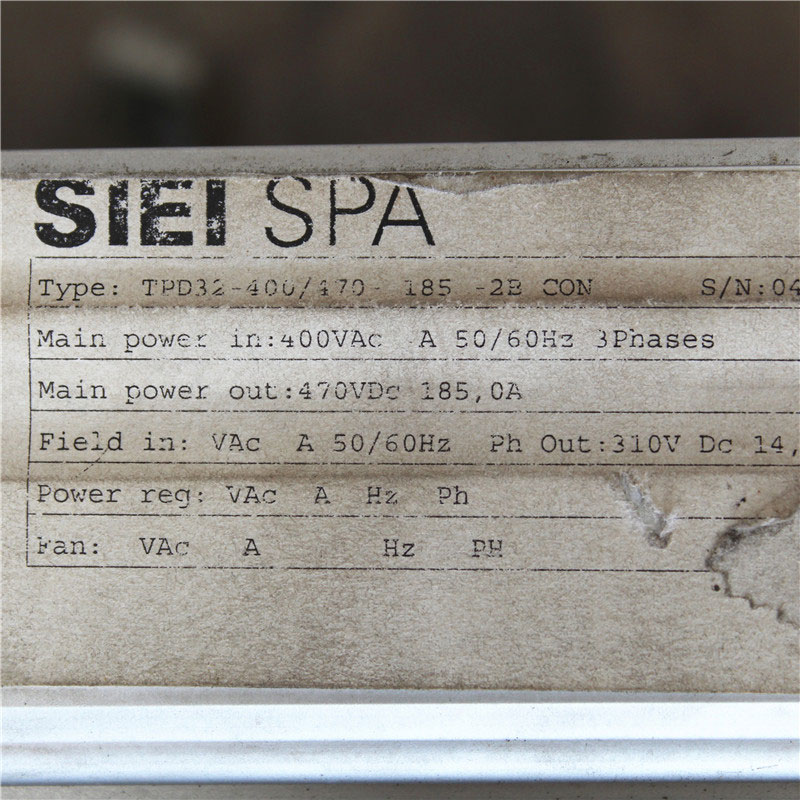 SIEI SPA
Type: TPD32-400/470- 185 -2B CON S/N:04
Main power in:400VAc A 50/60Hz 3Phases
Main power out:470VDc 185,0A
Field in: VAc A 50/60Hz Ph Out:310V Dc 14,
Power reg: VAc A Hz Ph
Fan: VAc A Hz PH